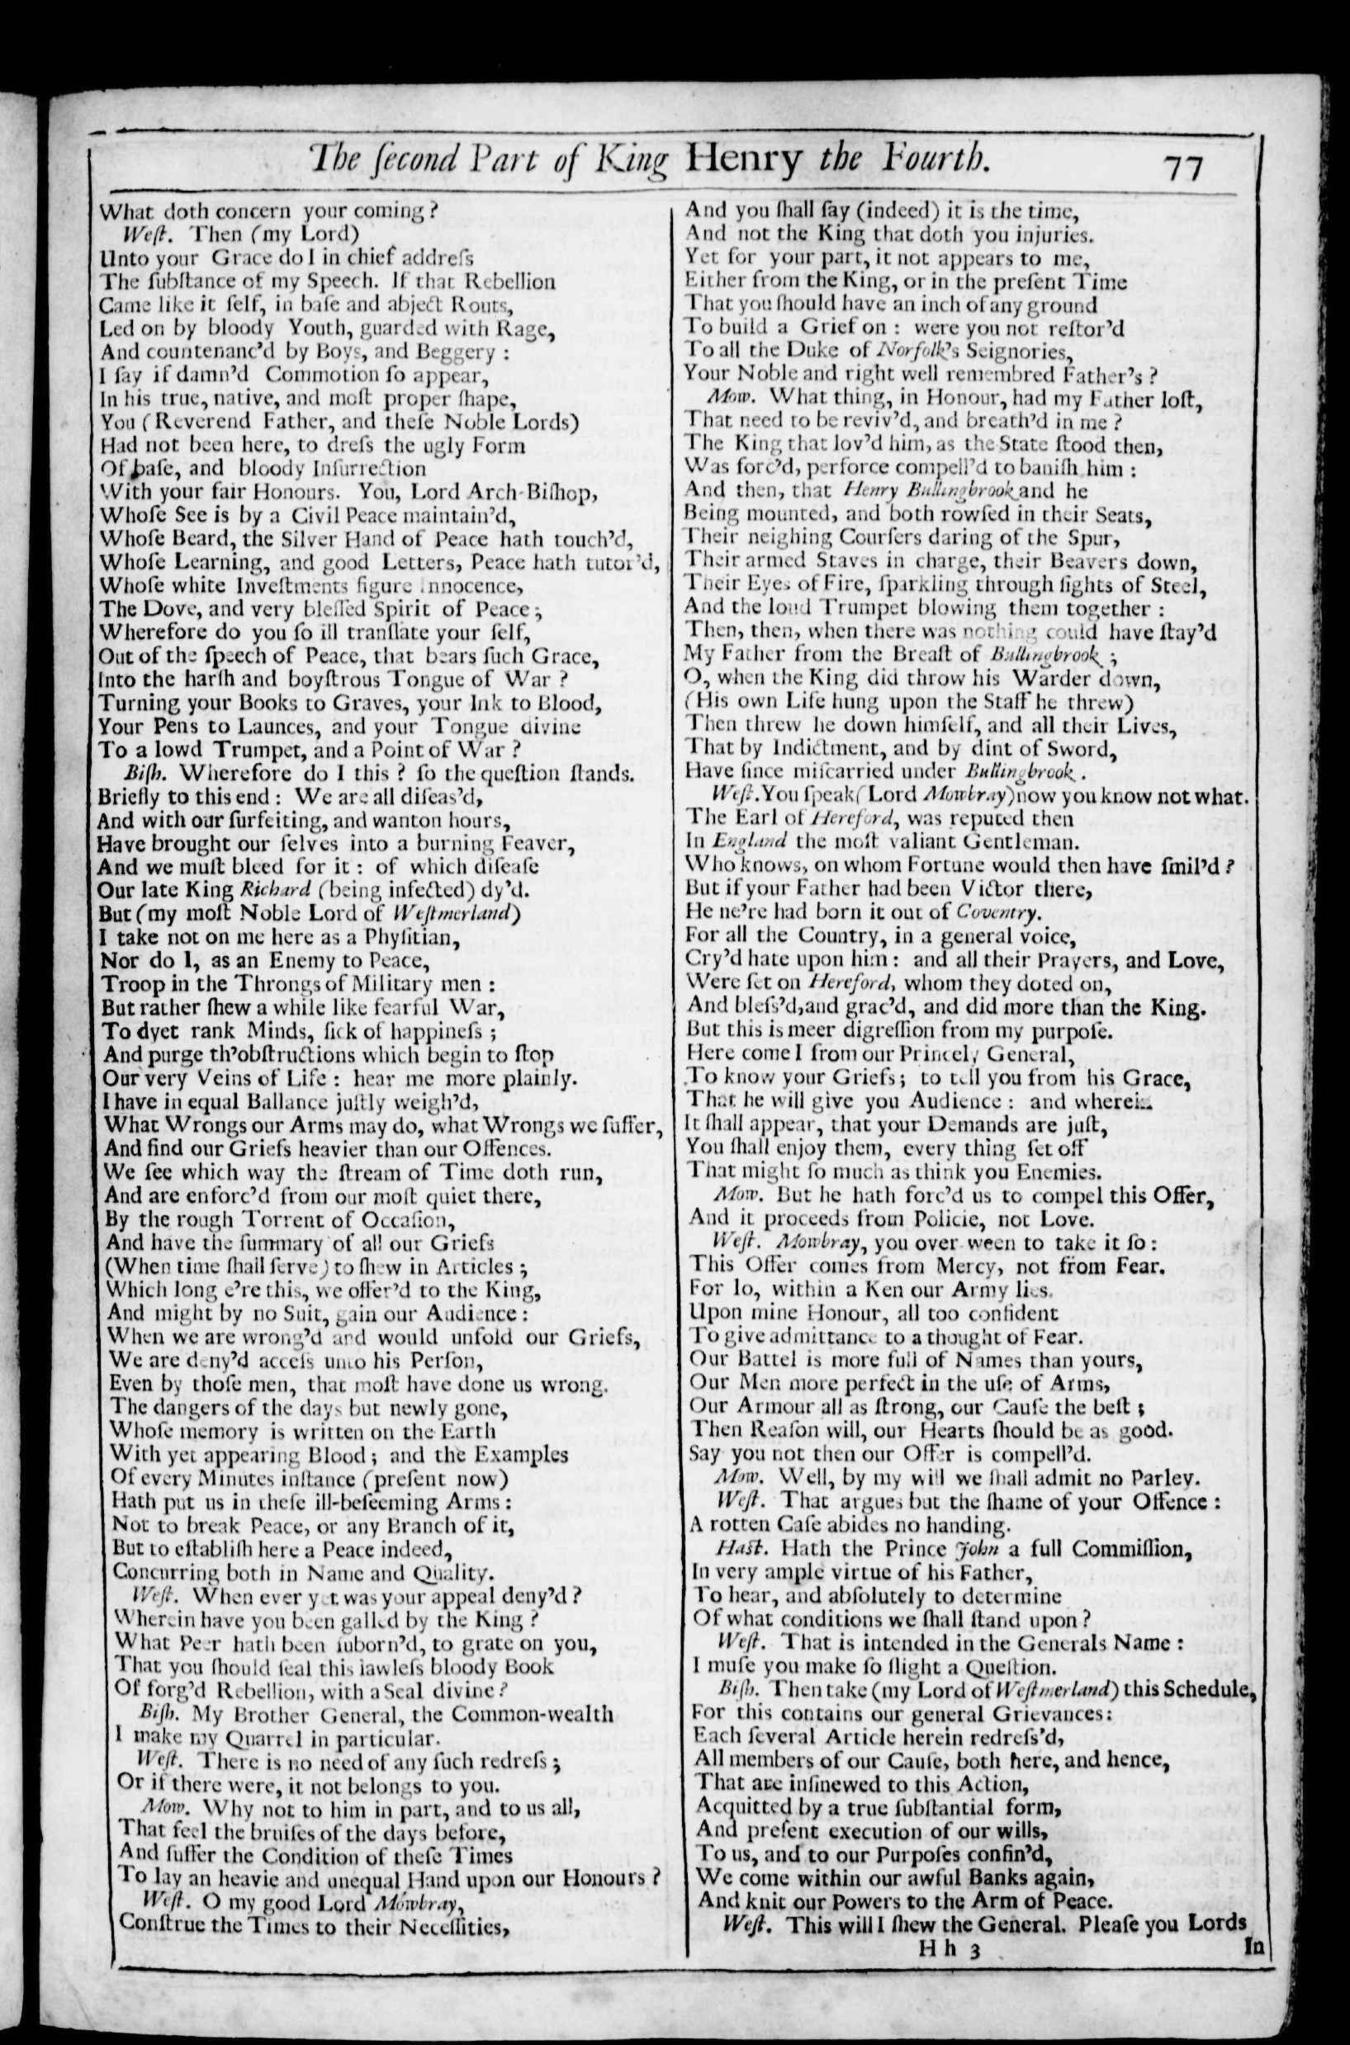 The ſecond Part of King Henry the Fourth. 77
What doth concern your coming?
Weſt. Then (my Lord)
Unto your Grace do I in chief addreſs
The ſubſtance of my Speech. If that Rebellion
Came like it ſelf, in baſe and abject Routs,
Led on by bloody Youth, guarded with Rage,
And countenanc'd by Boys, and Beggery:
I ſay if damn'd Commotion ſo appear,
In his true, native, and moſt proper ſhape,
You (Reverend Father, and theſe Noble Lords)
Had not been here, to dreſs the ugly Form
Of baſe, and bloody Inſurrection
With your fair Honours. You, Lord Arch-Biſhop,
Whoſe See is by a Civil Peace maintain'd,
Whoſe Beard, the Silver Hand of Peace hath touch'd,
Whoſe Learning, and good Letters, Peace hath tutor'd,
Whoſe white Inveſtments figure Innocence,
The Dove, and very bleſſed Spirit of Peace;
Wherefore do you ſo ill tranſlate your ſelf,
Out of the ſpeech of Peace, that bears ſuch Grace,
Into the harſh and boyſtrous Tongue of War?
Turning your Books to Graves, your Ink to Blood,
Your Pens to Launces, and your Tongue divine
To a lowd Trumpet, and a Point of War?
Biſh. Wherefore do I this? ſo the queſtion ſtands.
Briefly to this end: We are all diſeas'd,
And with our ſurfeiting, and wanton hours,
Have brought our ſelves into a burning Feaver,
And we muſt bleed for it: of which diſeaſe
Our late King Richard (being infected) dy'd.
But (my moſt Noble Lord of Weſtmerland)
I take not on me here as a Phyſitian,
Nor do I, as an Enemy to Peace,
Troop in the Throngs of Military men:
But rather ſhew a while like fearful War,
To dyet rank Minds, ſick of happineſs;
And purge th'obſtructions which begin to ſtop
Our very Veins of Life: hear me more plainly.
I have in equal Ballance juſtly weigh'd,
What Wrongs our Arms may do, what Wrongs we ſuffer,
And find our Griefs heavier than our Offences.
We ſee which way the ſtream of Time doth run,
And are enforc'd from our moſt quiet there,
By the rough Torrent of Occaſion,
And have the ſummary of all our Griefs
(When time ſhall ſerve) to ſhew in Articles;
Which long e're this, we offer'd to the King,
And might by no Suit, gain our Audience:
When we are wrong'd and would unfold our Griefs,
We are deny'd acceſs unto his Perſon,
Even by thoſe men, that moſt have done us wrong.
The dangers of the days but newly gone,
Whoſe memory is written on the Earth
With yet appearing Blood; and the Examples
Of every Minutes inſtance (preſent now)
Hath put us in theſe ill-beſeeming Arms:
Not to break Peace, or any Branch of it,
But to eſtabliſh here a Peace indeed,
Concurring both in Name and Quality.
Weſt. When ever yet was your appeal deny'd?
Wherein have you been galled by the King?
What Peer hath been ſuborn'd, to grate on you,
That you ſhould ſeal this lawleſs bloody Book
Of forg'd Rebellion, with a Seal divine?
Biſh. My Brother General, the Common-wealth
I make my Quarrel in particular.
Weſt. There is no need of any ſuch redreſs;
Or if there were, it not belongs to you.
Mow. Why not to him in part, and to us all,
That feel the bruiſes of the days before,
And ſuffer the Condition of theſe Times
To lay an heavie and unequal Hand upon our Honours?
Weſt. O my good Lord Mowbray,
Conſtrue the Times to their Neceſſities,
And you ſhall ſay (indeed) it is the time,
And not the King that doth you injuries.
Yet for your part, it not appears to me,
Either from the King, or in the preſent Time
That you ſhould have an inch of any ground
To build a Grief on: were you not reſtor'd
To all the Duke of Norfolk's Seignories,
Your Noble and right well remembred Father's?
Mow. What thing, in Honour, had my Father loſt,
That need to be reviv'd, and breath'd in me?
The King that lov'd him, as the State ſtood then,
Was forc'd, perforce compell'd to baniſh him:
And then, that Henry Bullingbrook and he
Being mounted, and both rowſed in their Seats,
Their neighing Courſers daring of the Spur,
Their armed Staves in charge, their Beavers down,
Their Eyes of Fire, ſparkling through ſights of Steel,
And the loud Trumpet blowing them together:
Then, then, when there was nothing could have ſtay'd
My Father from the Breaſt of Bullingbrook;
O, when the King did throw his Warder down,
(His own Life hung upon the Staff he threw)
Then threw he down himſelf, and all their Lives,
That by Indictment, and by dint of Sword,
Have ſince miſcarried under Bullingbrook.
Weſt. You ſpeak (Lord Mowbray) now you know not what.
The Earl of Hereford, was reputed then
In England the moſt valiant Gentleman.
Who knows, on whom Fortune would then have ſmil'd?
But if your Father had been Victor there,
He ne're had born it out of Coventry.
For all the Country, in a general voice,
Cry'd hate upon him: and all their Prayers, and Love,
Were ſet on Hereford, whom they doted on,
And bleſs'd, and grac'd, and did more than the King.
But this is meer digreſſion from my purpoſe.
Here come I from our Princely General,
To know your Griefs; to tell you from his Grace,
That he will give you Audience: and wherein
It ſhall appear, that your Demands are juſt,
You ſhall enjoy them, every thing ſet off
That might ſo much as think you Enemies.
Mow. But he hath forc'd us to compel this Offer,
And it proceeds from Policie, not Love.
Weſt. Mowbray, you over ween to take it ſo:
This Offer comes from Mercy, not from Fear.
For lo, within a Ken our Army lies.
Upon mine Honour, all too confident
To give admittance to a thought of Fear.
Our Battel is more full of Names than yours,
Our Men more perfect in the uſe of Arms,
Our Armour all as ſtrong, our Cauſe the beſt;
Then Reaſon will, our Hearts ſhould be as good.
Say you not then our Offer is compell'd.
Mow. Well, by my will we ſhall admit no Parley.
Weſt. That argues but the ſhame of your Offence:
A rotten Caſe abides no handing.
Haſt. Hath the Prince John a full Commiſſion,
In very ample virtue of his Father,
To hear, and abſolutely to determine
Of what conditions we ſhall ſtand upon?
Weſt. That is intended in the Generals Name:
I muſe you make ſo ſlight a Queſtion.
Biſh. Then take (my Lord of Weſtmerland) this Schedule,
For this contains our general Grievances:
Each ſeveral Article herein redreſs'd,
All members of our Cauſe, both here, and hence,
That are inſinewed to this Action,
Acquitted by a true ſubſtantial form,
And preſent execution of our wills,
To us, and to our Purpoſes confin'd,
We come within our awful Banks again,
And knit our Powers to the Arm of Peace.
Weſt. This will I ſhew the General. Pleaſe you Lords
H h 3 In